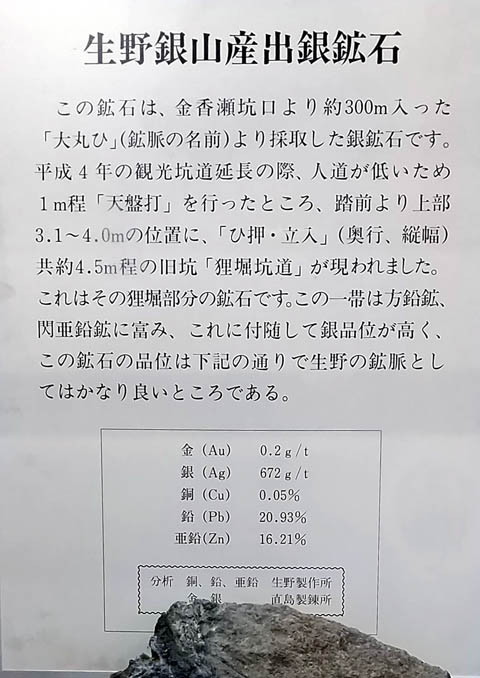 生野銀山産出銀鉱石
この鉱石は、金香瀬坑口より約300m入った
「大丸ひ」(鉱脈の名前)より採取した銀鉱石です。
平成4年の観光坑道延長の際、人道が低いため
1m程「天盤打」を行ったところ、踏前より上部
3.1〜4.0mの位置に、「ひ押・立入」(奥行、縦幅)
共約4.5m程の旧坑「狸堀坑道」が現われました。
これはその狸堀部分の鉱石です。この一帯は方鉛鉱、
閃亜鉛鉱に富み、これに付随して銀品位が高く、
この鉱石の品位は下記の通りで生野の鉱脈とし
てはかなり良いところである。
金 (Au) 0.2g/t
銀 (Ag) 672g/t
銅 (Cu) 0.05%
鉛 (Pb) 20.93%
亜鉛(Zn) 16.21%
分析 銅、鉛、亜鉛 生野製作所
金 銀 直島製錬所